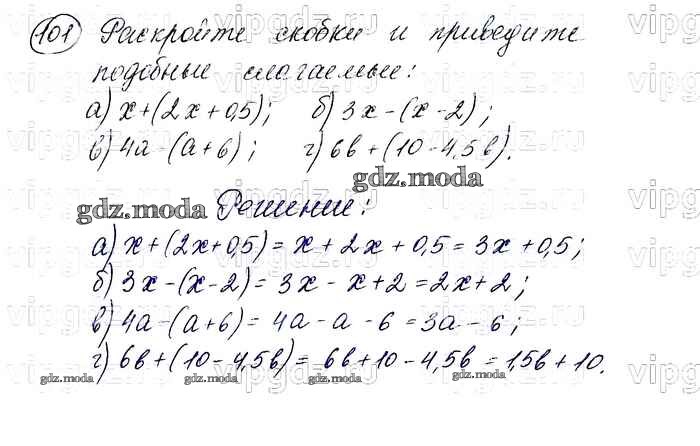 101 Раскройте скобки и приведите
подобные слагаемые:
а) x+(2x+0,5); б) 3x-(x-2);
в) 4a-(a+6); г) 6в+(10-4,5в).
gdz.moda
gdz.moda Решение:
а) x+(2x+0,5)= x+2x+0,5=3x+0,5;
б) 3x-(x-2)= 3x-x+2=2x+2;
в) 4a-(a+6)= 4a-a-6=3a-6;
г) 6в+(10-4,5в)= 6в+10-4,5в=1,5в+10.
gdz.moda gdz.moda gdz.moda gdz.moda
vipgdz.ru vipgdz.ru vipgdz.ru